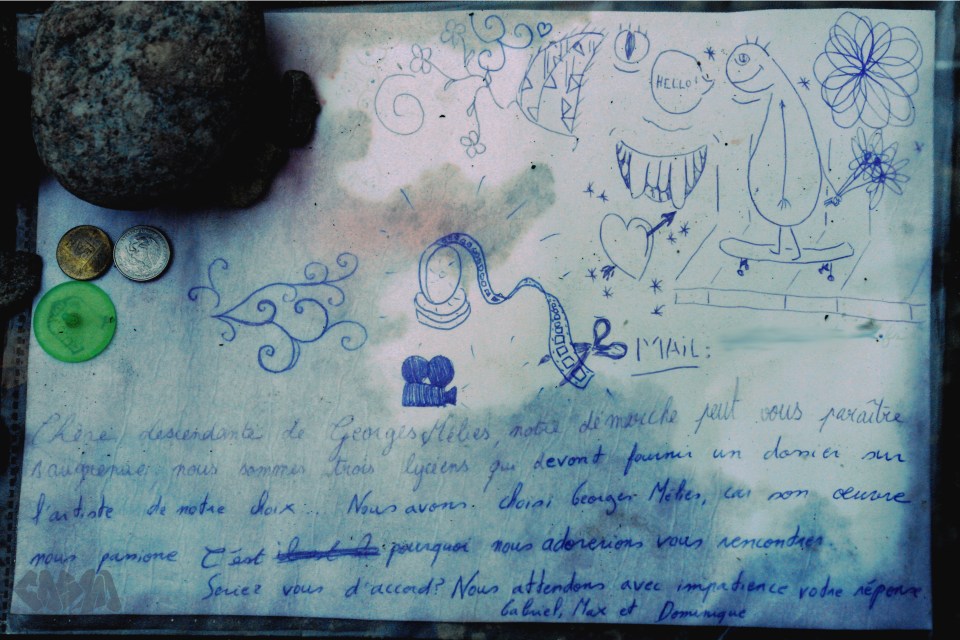 HELLO!
MAIL:
Chère descendante de Georges Méliès, notre démarche peut vous paraître
saugrenue. nous sommes trois lycéens qui devont fournir un dossier sur
l'artiste de notre choix... Nous avons choisi Georges Méliès, car son oeuvre
nous passione C'est pourquoi nous adorerions vous rencontrer.
Seriez vous d'accord? Nous attendons avec impatience votre réponse
Gabriel, Max et Dominique